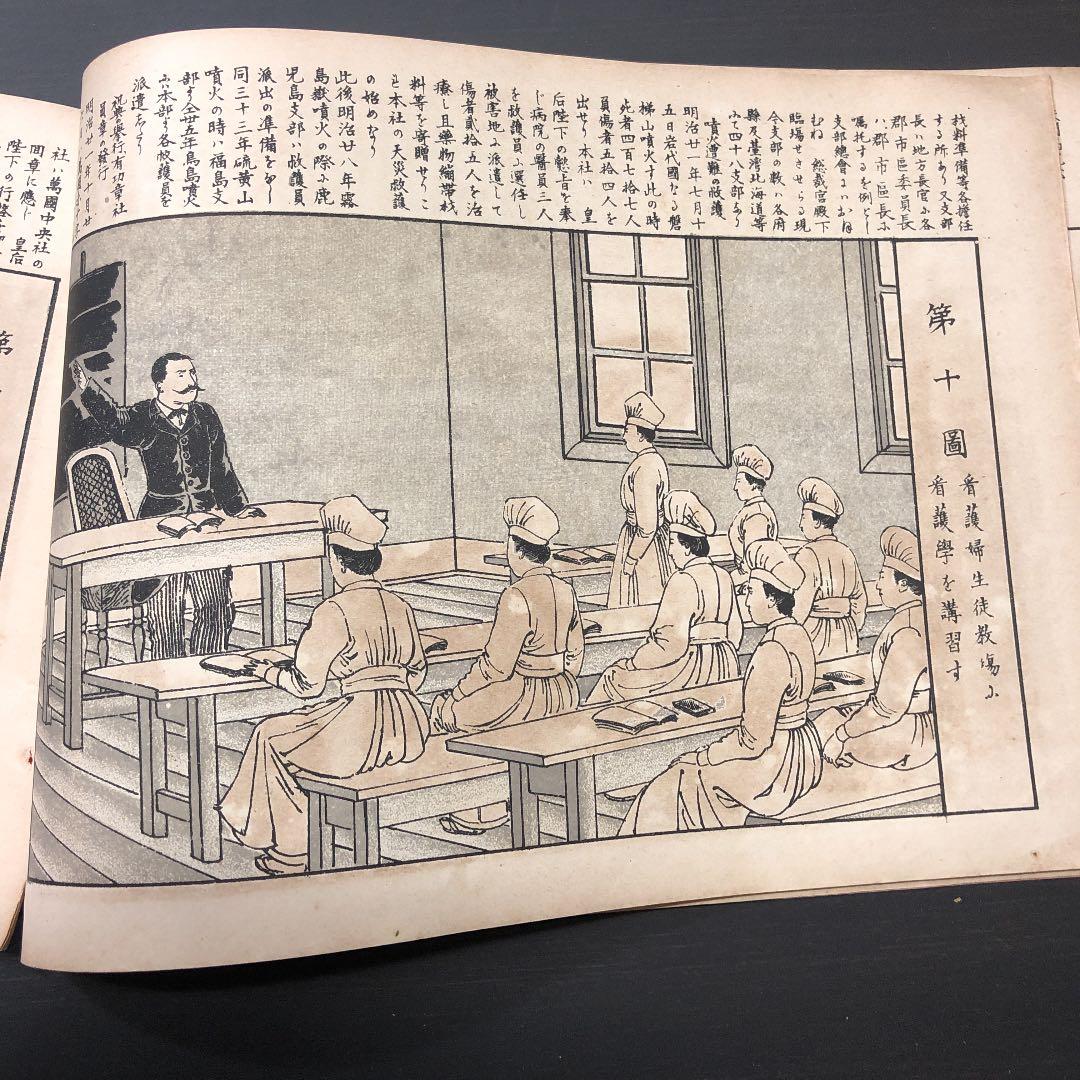 材料準備等各擔任
する所あり又支部
長ハ地方長官ふ各
郡市區委員長
ハ郡市區長ふ
嘱托するを例とし
支部總會においては
むね 総裁宮殿下
臨塲せさせらる現
今支部の数ハ各府
縣及臺湾北海道等
ふて四十八支部あり
噴火遭難の救護
明治廿一年七月十
五日岩代國なる磐
梯山噴火す此の時
死者四百七拾七人
負傷者五拾四人を
出せり本社ハ 皇
后陛下の懿旨を奉
じ病院の醫員三人
を救護員ふ選任し
被害地ふ派遣して
傷者貳拾五人を治
療し且藥物繃帯材
料等を寄贈せりこ
れ本社の天災救護
の始めなり
此後明治廿八年霧
島嶽噴火の際ふ鹿
児島支部ハ救護員
派出の準備をなし
同三十三年硫黄山
噴火の時ハ福島支
部よ里仝卅五年鳥島噴火
ふハ本部より各救護員を
派遣志たり
祝典の擧行有功章社
員章の發行
明治廿一年十月廿
第十圖
看護婦生徒教塲ふ
看護學を講習す
社ハ萬國中央社の
回章に應じ 皇后
陛下の行啓
第